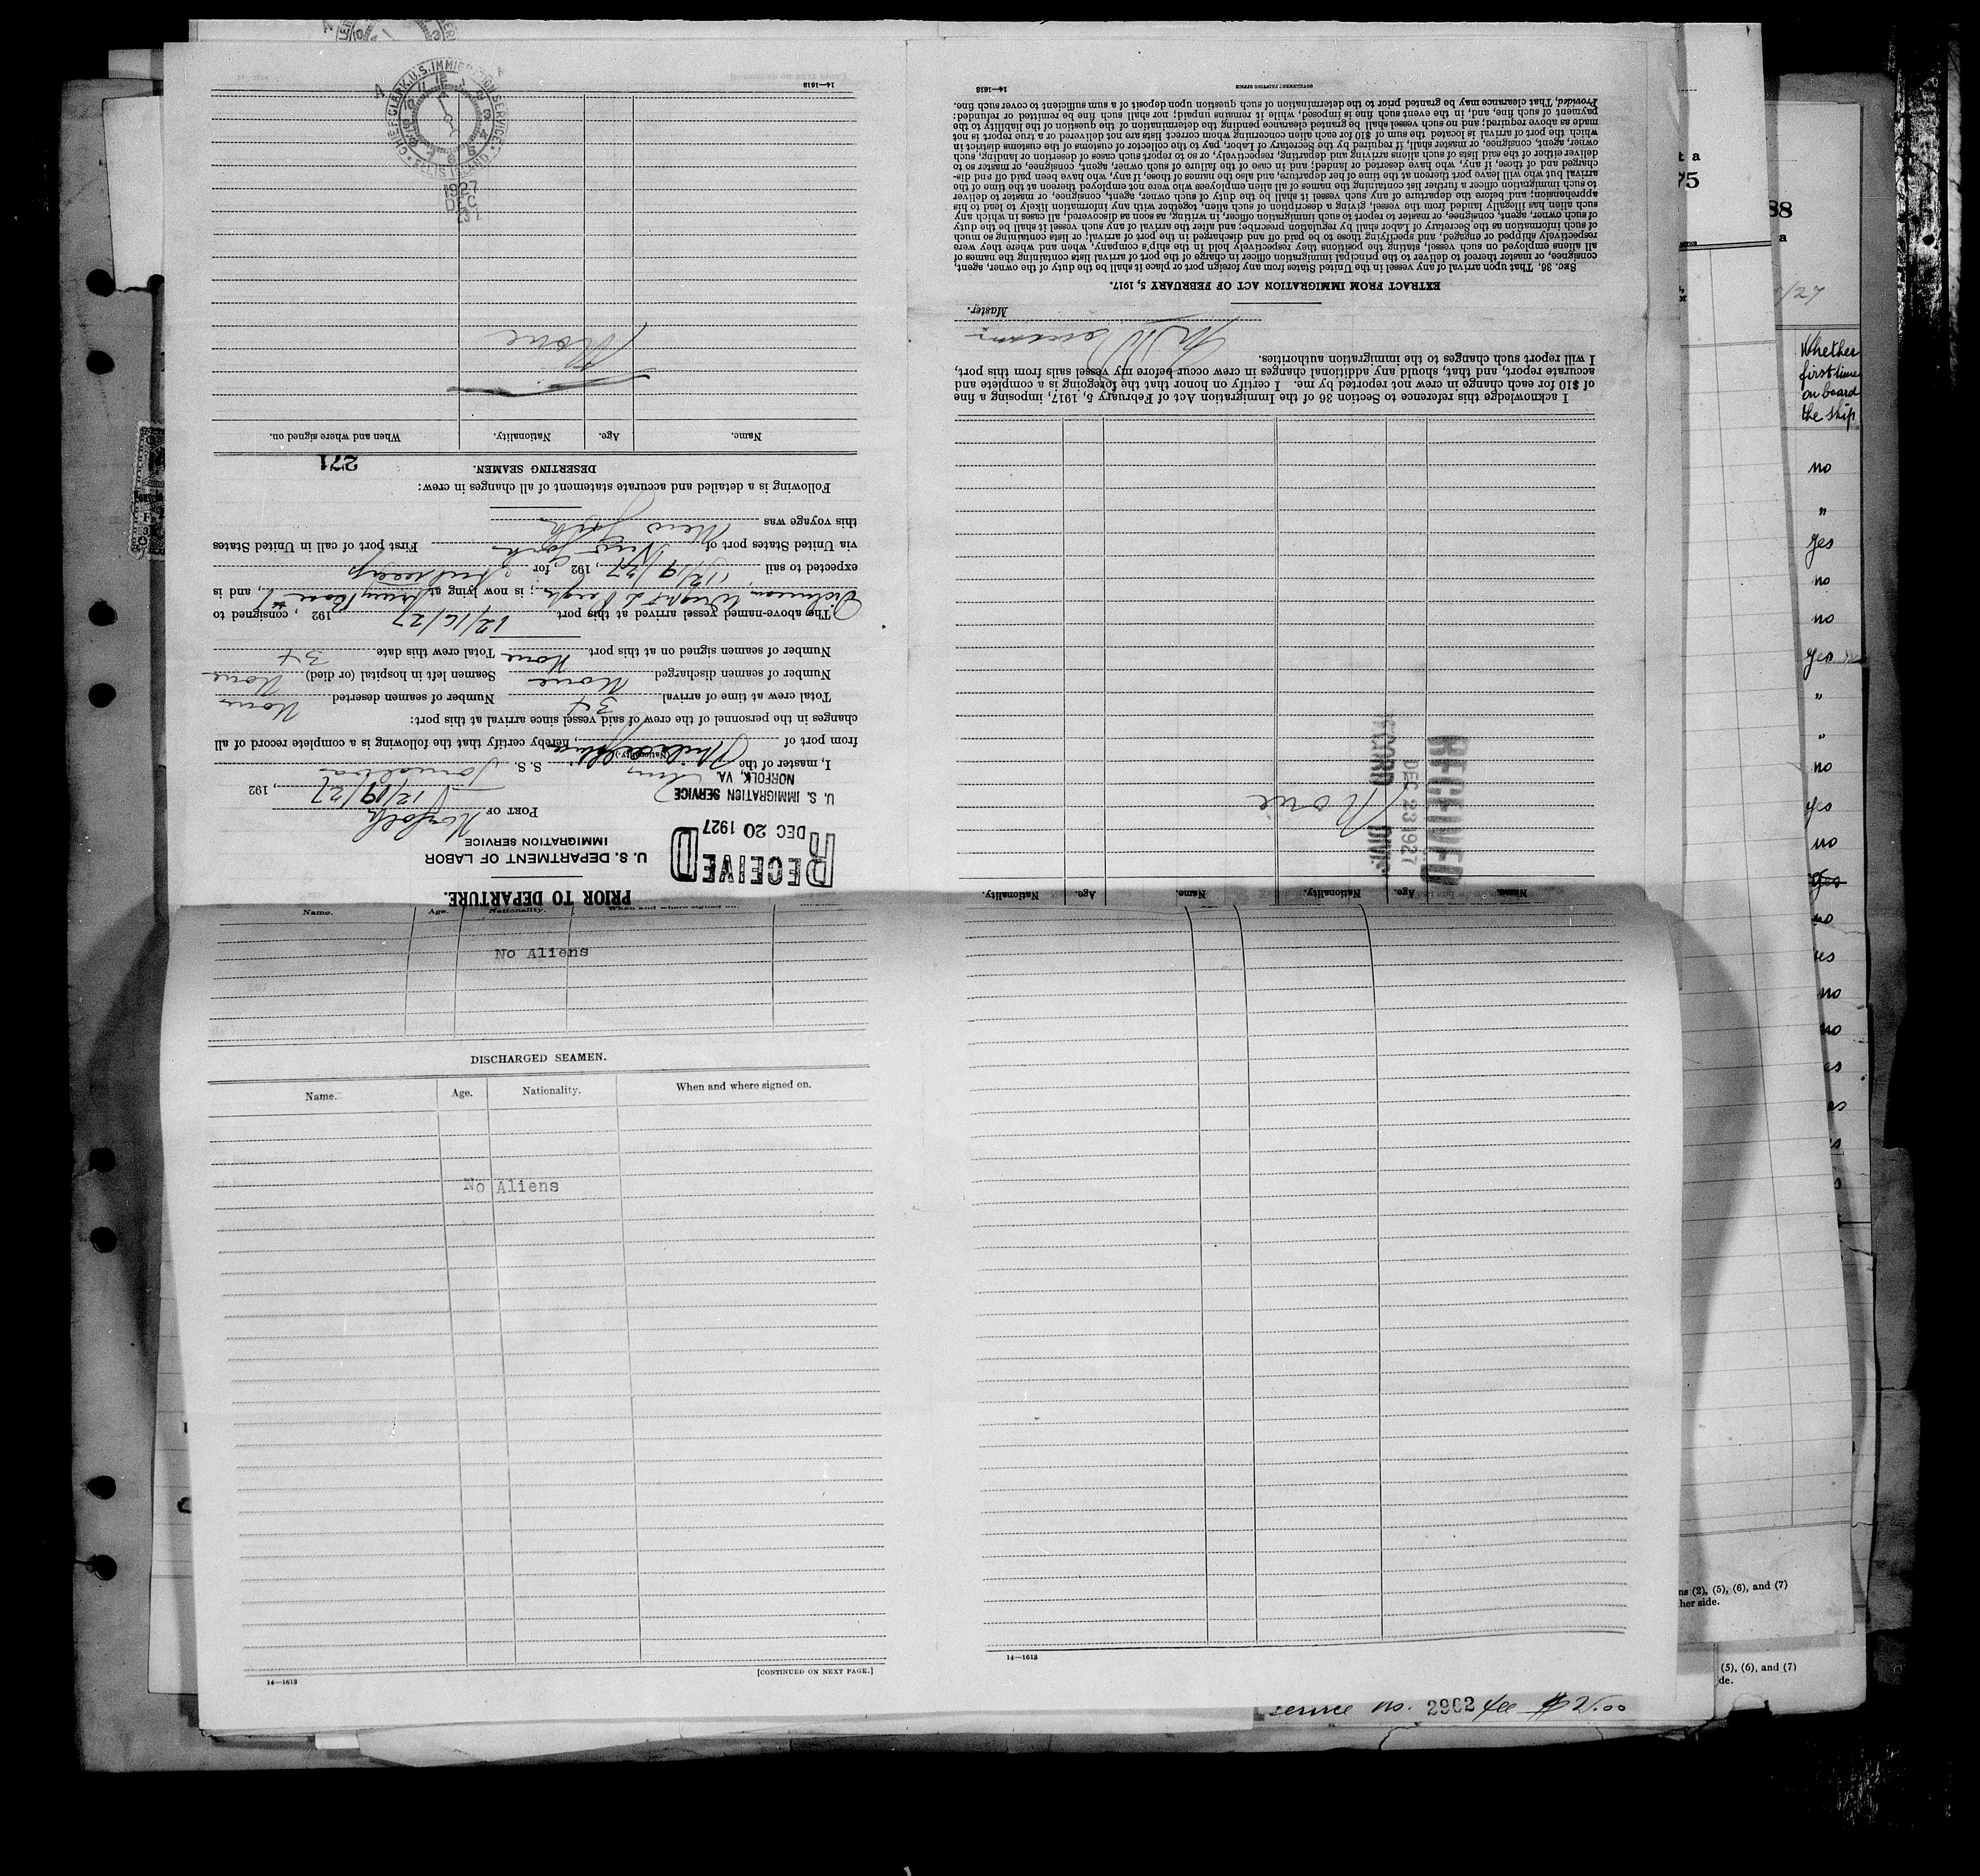 PRIOR TO DEPARTURE.
U. S. DEPARTMENT OF LABOR
IMMIGRATION SERVICE
RECEIVED
DEC 20 1927
U. S. IMMIGRATION SERVICE
NORFOLK, VA.
Port of Norfolk
12/19/27, 192
I, master of the S. S.
(Nationality.)
from port of Philadelphia, hereby certify that the following is a complete record of all
changes in the personnel of the crew of said vessel since arrival at this port:
Total crew at time of arrival 34 Number of seamen deserted None
Number of seamen discharged None Seamen left in hospital (or died) None
Number of seamen signed on at this port None Total crew this date 34
The above-named vessel arrived at this port 12/16/27 192 , consigned to
Dichmann Wright & Pugh; is now lying at Army Base #1, and is
expected to sail 12/19/27, 192 for
via United States port of New York First port of call in United States
this voyage was New York
Following is a detailed and accurate statement of all changes in crew:
DESERTING SEAMEN.
271
Name. Age. Nationality. When and where signed on.
None
14—1613
CHIEF CLERK, U.S. IMMIGRATION SERVICE
ELLIS ISLAND
1927
DEC
23
Name. Age. Nationality. Name. Age. Nationality.
RECEIVED
DEC 23 1927
RECORD DIV.
None
I acknowledge this reference to Section 36 of the Immigration Act of February 5, 1917, imposing a fine
of $10 for each change in crew not reported by me. I certify on honor that the foregoing is a complete and
accurate report, and that, should any additional changes in crew occur before my vessel sails from this port,
I will report such changes to the immigration authorities.
Master.
EXTRACT FROM IMMIGRATION ACT OF FEBRUARY 5, 1917.
Sec. 36. That upon arrival of any vessel in the United States from any foreign port or place it shall be the duty of the owner, agent,
consignee, or master thereof to deliver to the principal immigration officer in charge of the port of arrival lists containing the names of
all aliens employed on such vessel, stating the positions they respectively hold in the ship's company, when and where they were
respectively shipped or engaged, and specifying those to be paid off and discharged in the port of arrival; or lists containing so much
of such information as the Secretary of Labor shall by regulation prescribe; and after the arrival of any such vessel it shall be the duty
of such owner, agent, consignee, or master to report to such immigration officer, in writing, as soon as discovered, all cases in which any
such alien has illegally landed from the vessel, giving a description of such alien, together with any information likely to lead to his
apprehension; and before the departure of any such vessel it shall be the duty of such owner, agent, consignee, or master to deliver
to such immigration officer a further list containing the names of all alien employees who were not employed thereon at the time of the
arrival but who will leave port thereon at the time of her departure, and also the names of those, if any, who have been paid off and dis-
charged and of those, if any, who have deserted or landed; and in case of the failure of such owner, agent, consignee, or master so to
deliver either of the said lists of such aliens arriving and departing, respectively, or so to report such cases of desertion or landing, such
owner, agent, consignee, or master, shall, if required by the Secretary of Labor, pay to the collector of customs of the customs district in
which the port of arrival is located the sum of $10 for each alien concerning whom correct lists are not delivered or a true report is not
made as above required; and no such vessel shall be granted clearance pending the determination of the question of the liability to the
payment of such fine, and, in the event such fine is imposed, while it remains unpaid; nor shall such fine be remitted or refunded:
Provided, That clearance may be granted prior to the determination of such question upon deposit of a sum sufficient to cover such fine.
14—1613
GOVERNMENT PRINTING OFFICE
Name. Age. Nationality. When and where signed on.
No Aliens
DISCHARGED SEAMEN.
Name. Age. Nationality. When and where signed on.
No Aliens
14—1613
[CONTINUED ON NEXT PAGE.]
14—1613
service no. 2902 fee $2.00
t a
75
88
a
/27
Whether
first time
on board
the ship
no
"
yes
no
no
yes
"
"
no
yes
no
yes
no
yes
no
no
ns (2), (5), (6), and (7)
her side.
(5), (6), and (7)
de.